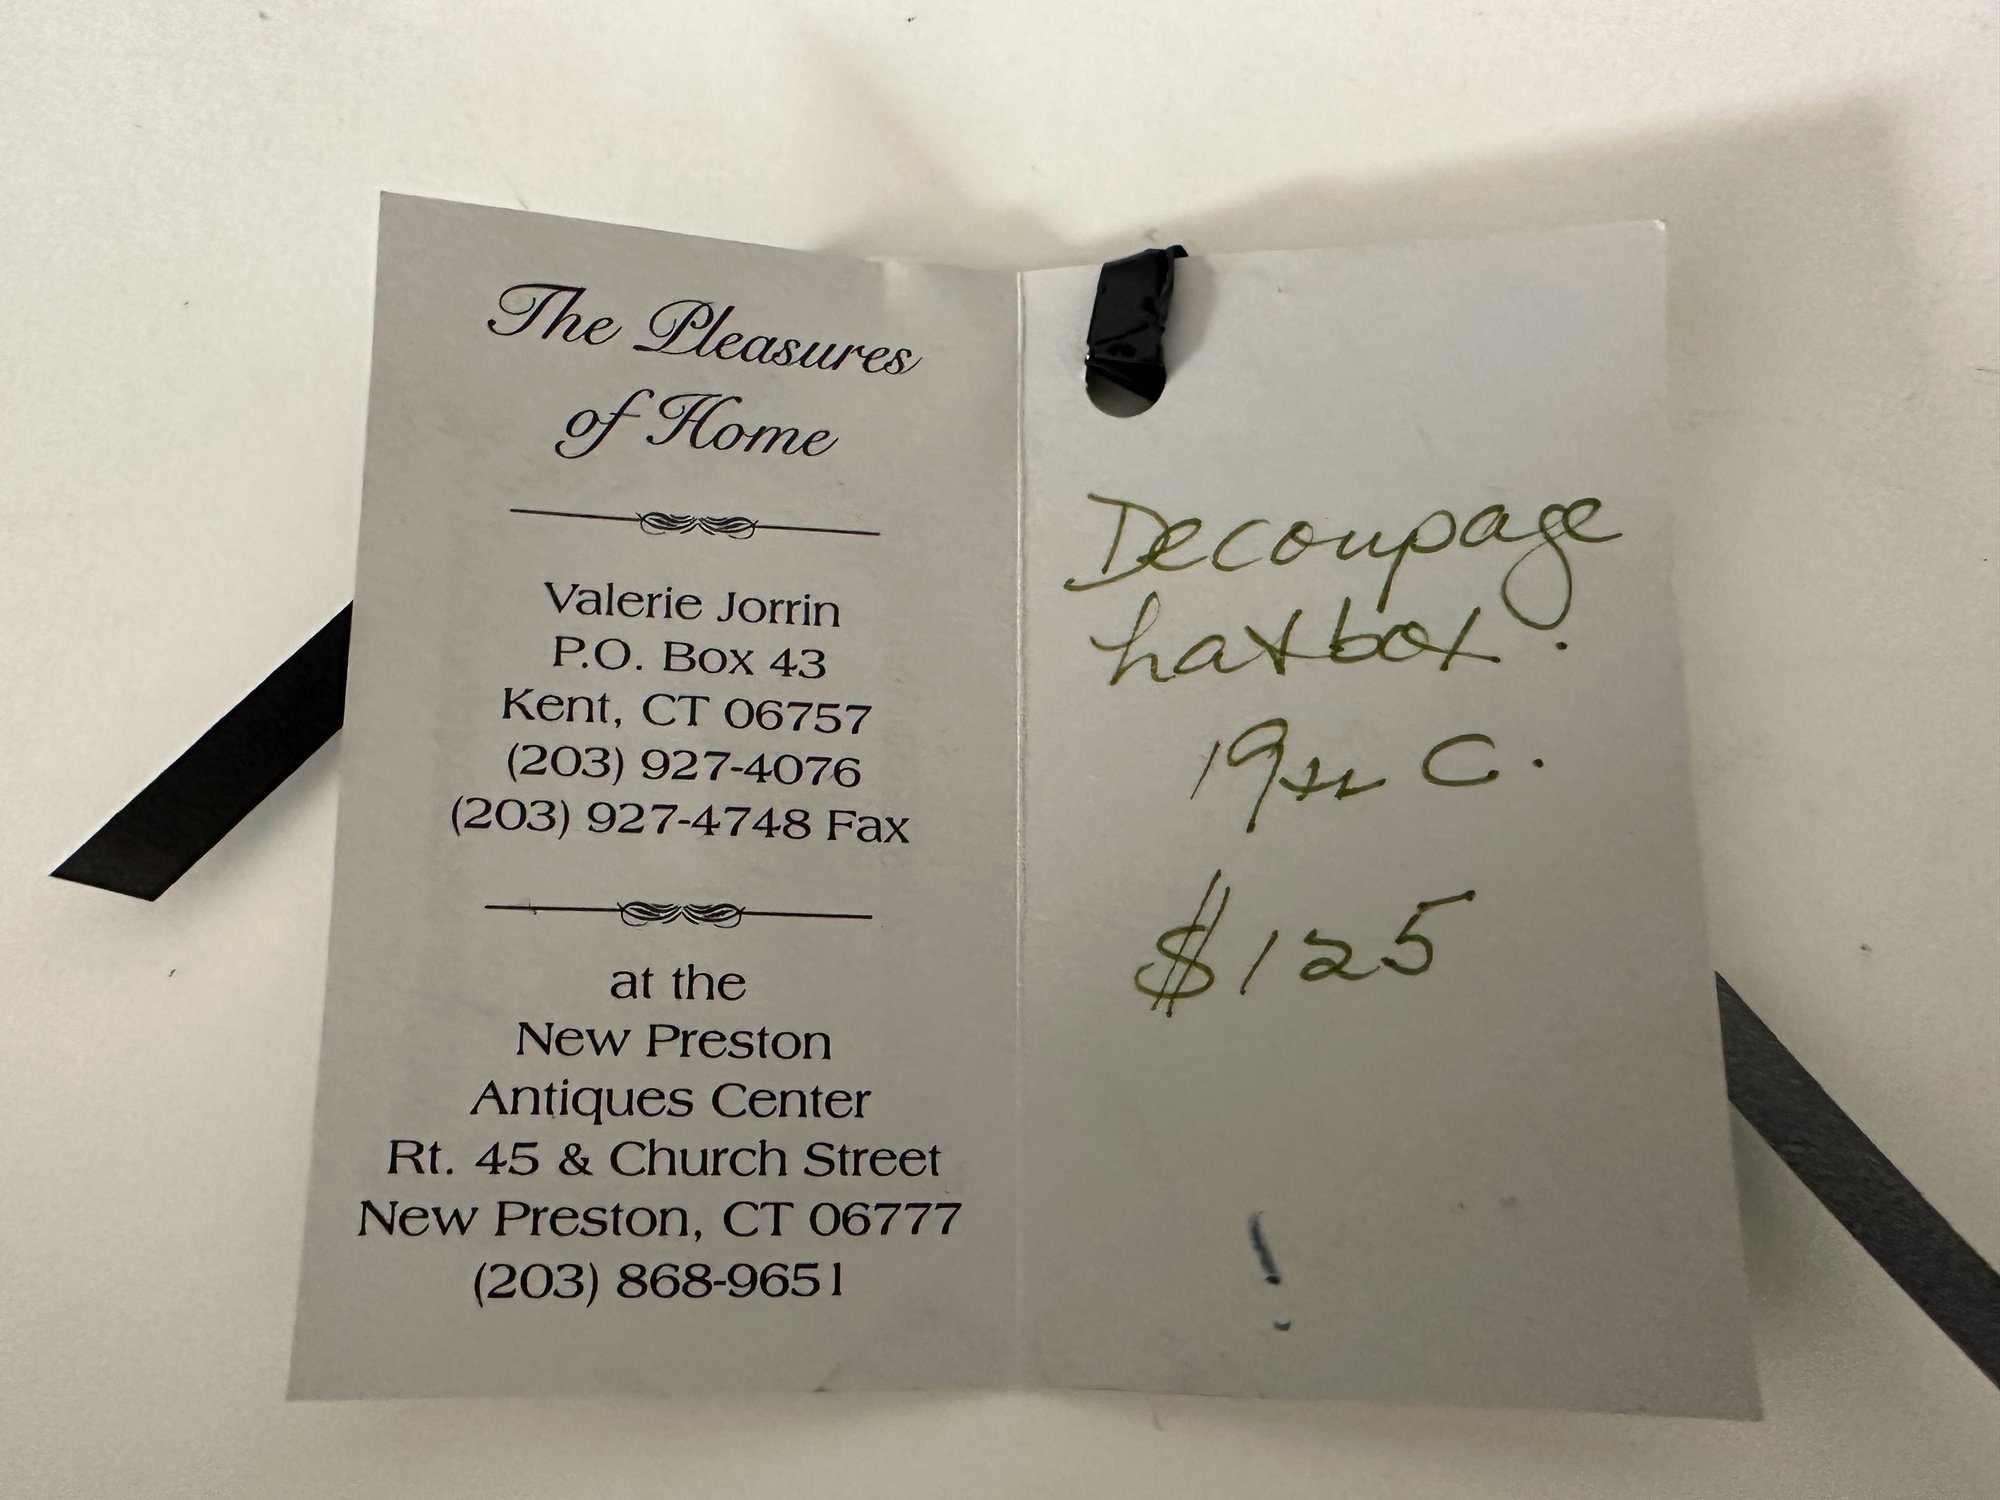 The Pleasures
of Home
Valerie Jorrin
P.O. Box 43
Kent, CT 06757
(203) 927-4076
(203) 927-4748 Fax
at the
New Preston
Antiques Center
Rt. 45 & Church Street
New Preston, CT 06777
(203) 868-9651
Decoupage
hatbox.
19th C.
$125
!